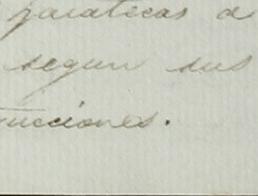 paraticas a
segun sus
ucciones.